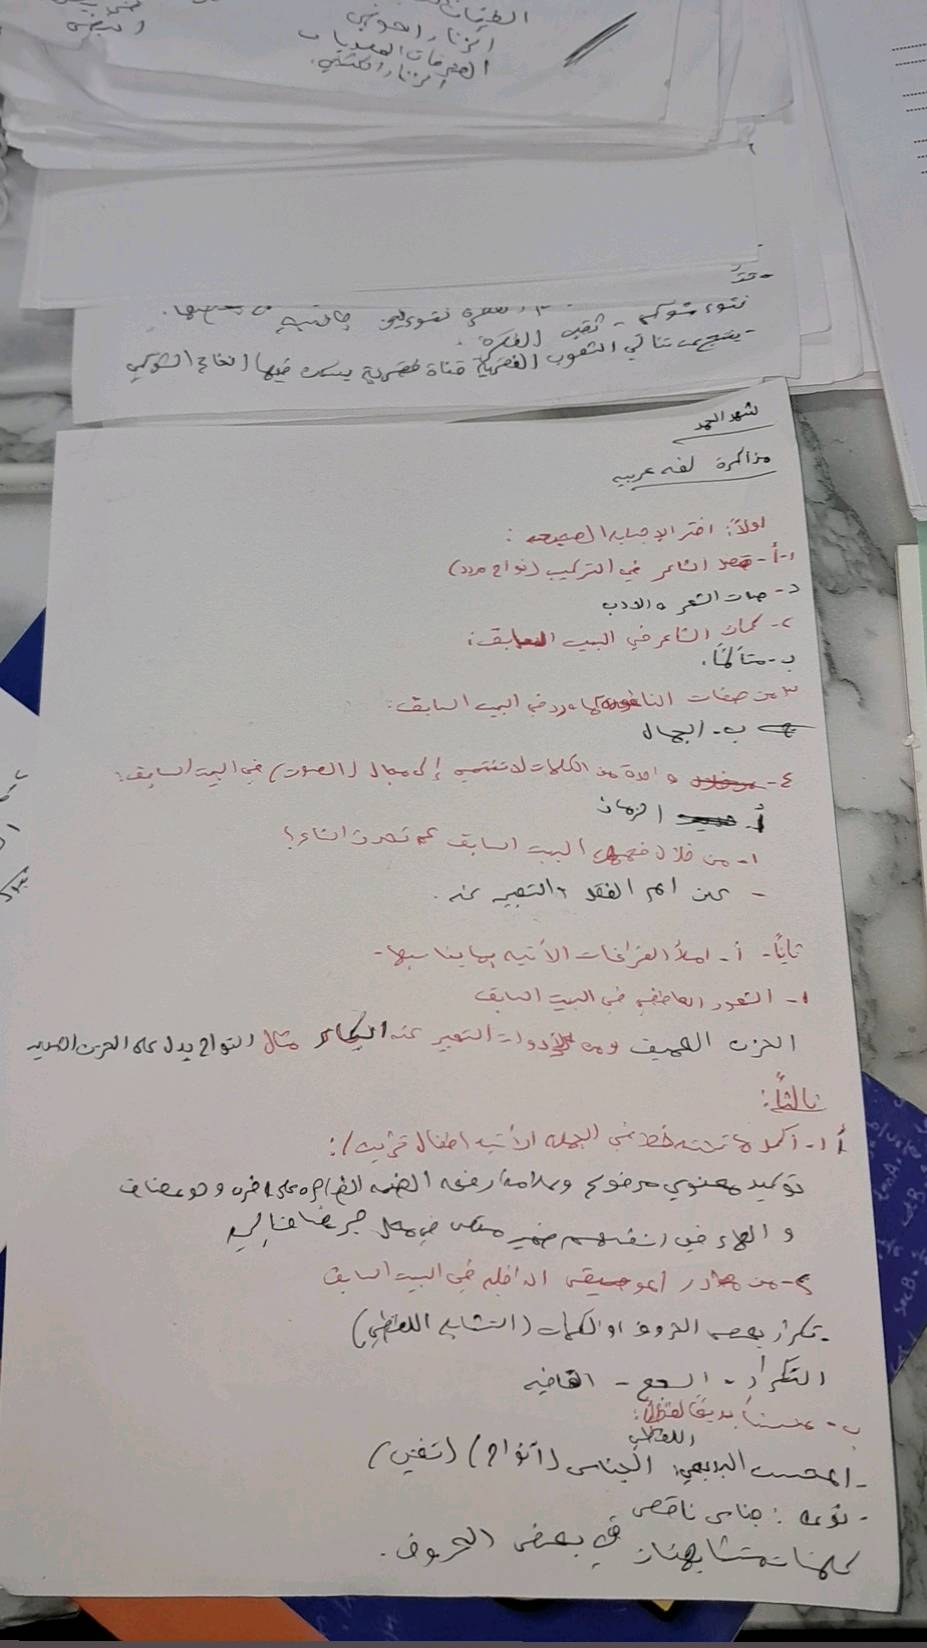 الزنار الحوضي
نتوء شوكي - ثقب الفقرة
ينتج عن تتالي الثقوب الفقرية قناة فقرية يسكن فيها النخاع الشوكي
شهد الحمد
مذاكرة لغه عربيه
اولاً: اختر الإجابه الصحيحه:
١-أ- قصد الشاعر في التركيب (نواح مردد)
د- مات الشعر والادب
٢- كان الشاعر في البيت السابق:
ب- متألماً.
٣ من صفات كما ورد في البيت السابق:
ب- الجمال
٤- واحدة من الكلمات لا تنتمي إلى مجال (الصوت) في البيت السابق:
أ- الزمان
١- من خلال فهمك البيت السابق عم تحدث الشاعر؟
- عن الم الفقد والتعبير عنه.
ثانياً- أ- املأ الفراغات الأتيه بما يناسبها-
١- الشعور العاطفي في البيت السابق
الحزن العميق ومن ادوات التعبير عنه البكاء مثال النواح يدل على الحزن الشديد
ثالثاً:
أ ١- ما تحته خط في الجمله الأتيه
توكيد معنوي مرفوع وعلامة رفعه الضمه الظاهره على اخره وهو مضاف
و الهاء في انفسهم ضمير متصل في محل جر مضاف إليه
٢- من مصادر الموسيقى الداخليه في البيت السابق
- تكرار بعض الحروف او الكلمات (التشابه اللفظي)
التكرار - السجع - القافيه
ب- محسناً بديعياً لفظياً:
اللفظي
- المحسن البديعي: الجناس (أنواح)
- نوعه: جناس ناقص
كلمتان متشابهتان في بعض الحروف.